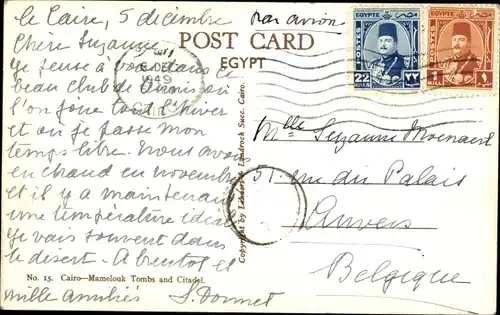 Le Caire, 5 décembre
Chère Suzanne
Je pense à vous dans ce
beau club de tennis où
l'on joue tout l'hiver
et où je passe mon
temps libre. Nous avons
eu chaud en novembre
et il y a maintenant
une température idéale
Je vais souvent dans
le désert. A bientôt et
mille amitiés S. Donnet
No. 15. Cairo—Mamelouk Tombs and Citadel.
Par avion
POST CARD
EGYPT
6 DE
1949
Copyright by Lehnert & Landrock Succ. Cairo.
EGYPTE
POSTES
22
MILLS
٢٢
EGYPTE
POSTES
1
MILL
١
Mlle Suzanne Moenaert
51 rue du Palais
Anvers
Belgique